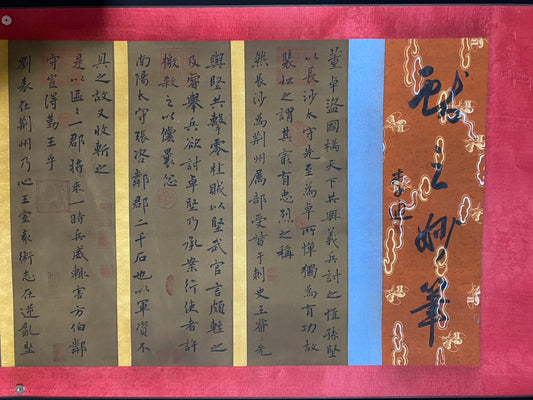 王妙筆
董卓盜國稱天下共興義兵討之惟孫堅
以長沙太守先至為卓所憚獨為有功故
裴松之謂其最有忠烈之稱
然長沙為荊州屬部受督于刺史王睿睿先
與堅共擊零桂賊以堅武官言頗輕之
及睿舉兵欲討卓堅乃承案行使者許
檄殺之以償曩忿
南陽太守張咨鄰郡二千石也以軍資不
具之故又收斬之
是以區區一郡將乘一時兵威輒害方伯鄰
守豈得勤王乎
劉表在荊州乃心王室袁術志在逆亂堅